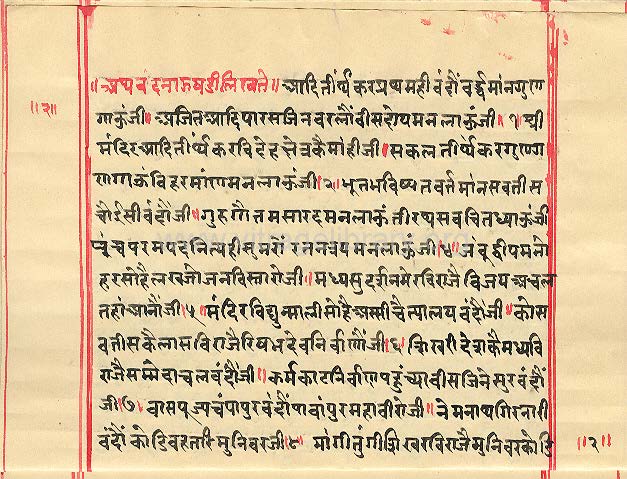 ॥अथ वंदना जषडी लिख्यते॥ आदितीर्थंकर प्रथमही वंदौं वर्द्धमांन गुण
॥२॥
गाऊंजी॥ अजित आदि पारस जिनवर लौं वीस दोय मन लाऊंजी॥१॥ श्री
मंदिर आदि तीर्थंकर विदेह क्षेत्र कै मांहीजी॥ सकल तीर्थंकर गुणग
णगाऊं विहरमांण मन लाऊंजी॥२॥ भूत भविष्यत वर्तमांन सव तीस
चोईसी वंदौंजी॥ गुरु गौतम सारद मन लाऊं तीरथ सव चित ध्याऊंजी
पंच परम पद नित्यही सुमरों रमन वच मन लाऊंजी॥४॥ जंबूद्वीप मनो
हर सोहै लख जोजन विसारोजी॥ मध्य सुदर्शन मेर विराजै विजय अचल
तहां आंनौंजी॥५॥ मंदिर विद्युन्माली सोहै अस्सी चैत्यालय वंदौंजी॥ कोस
वत्तीस कैलास विराजै रिषभदेव निर्वाणौंजी॥६॥ सिखरी देश कै मध्य वि
राजै सम्मेदाचल वंदौंजी॥ कर्म काट निर्वाण पहुंच्या वीस जिनेसुर वंदौं
जी॥७॥ वासपूज्य चंपापुर वंदौं पावांपुर महावीरोजी॥ नेमनाथ गिरनारी
वंदौं कोडि वहतरि मुनिवरजी॥८॥ मांगीतुंगी शिखर विराजै मुनिवर कोडि
॥२॥